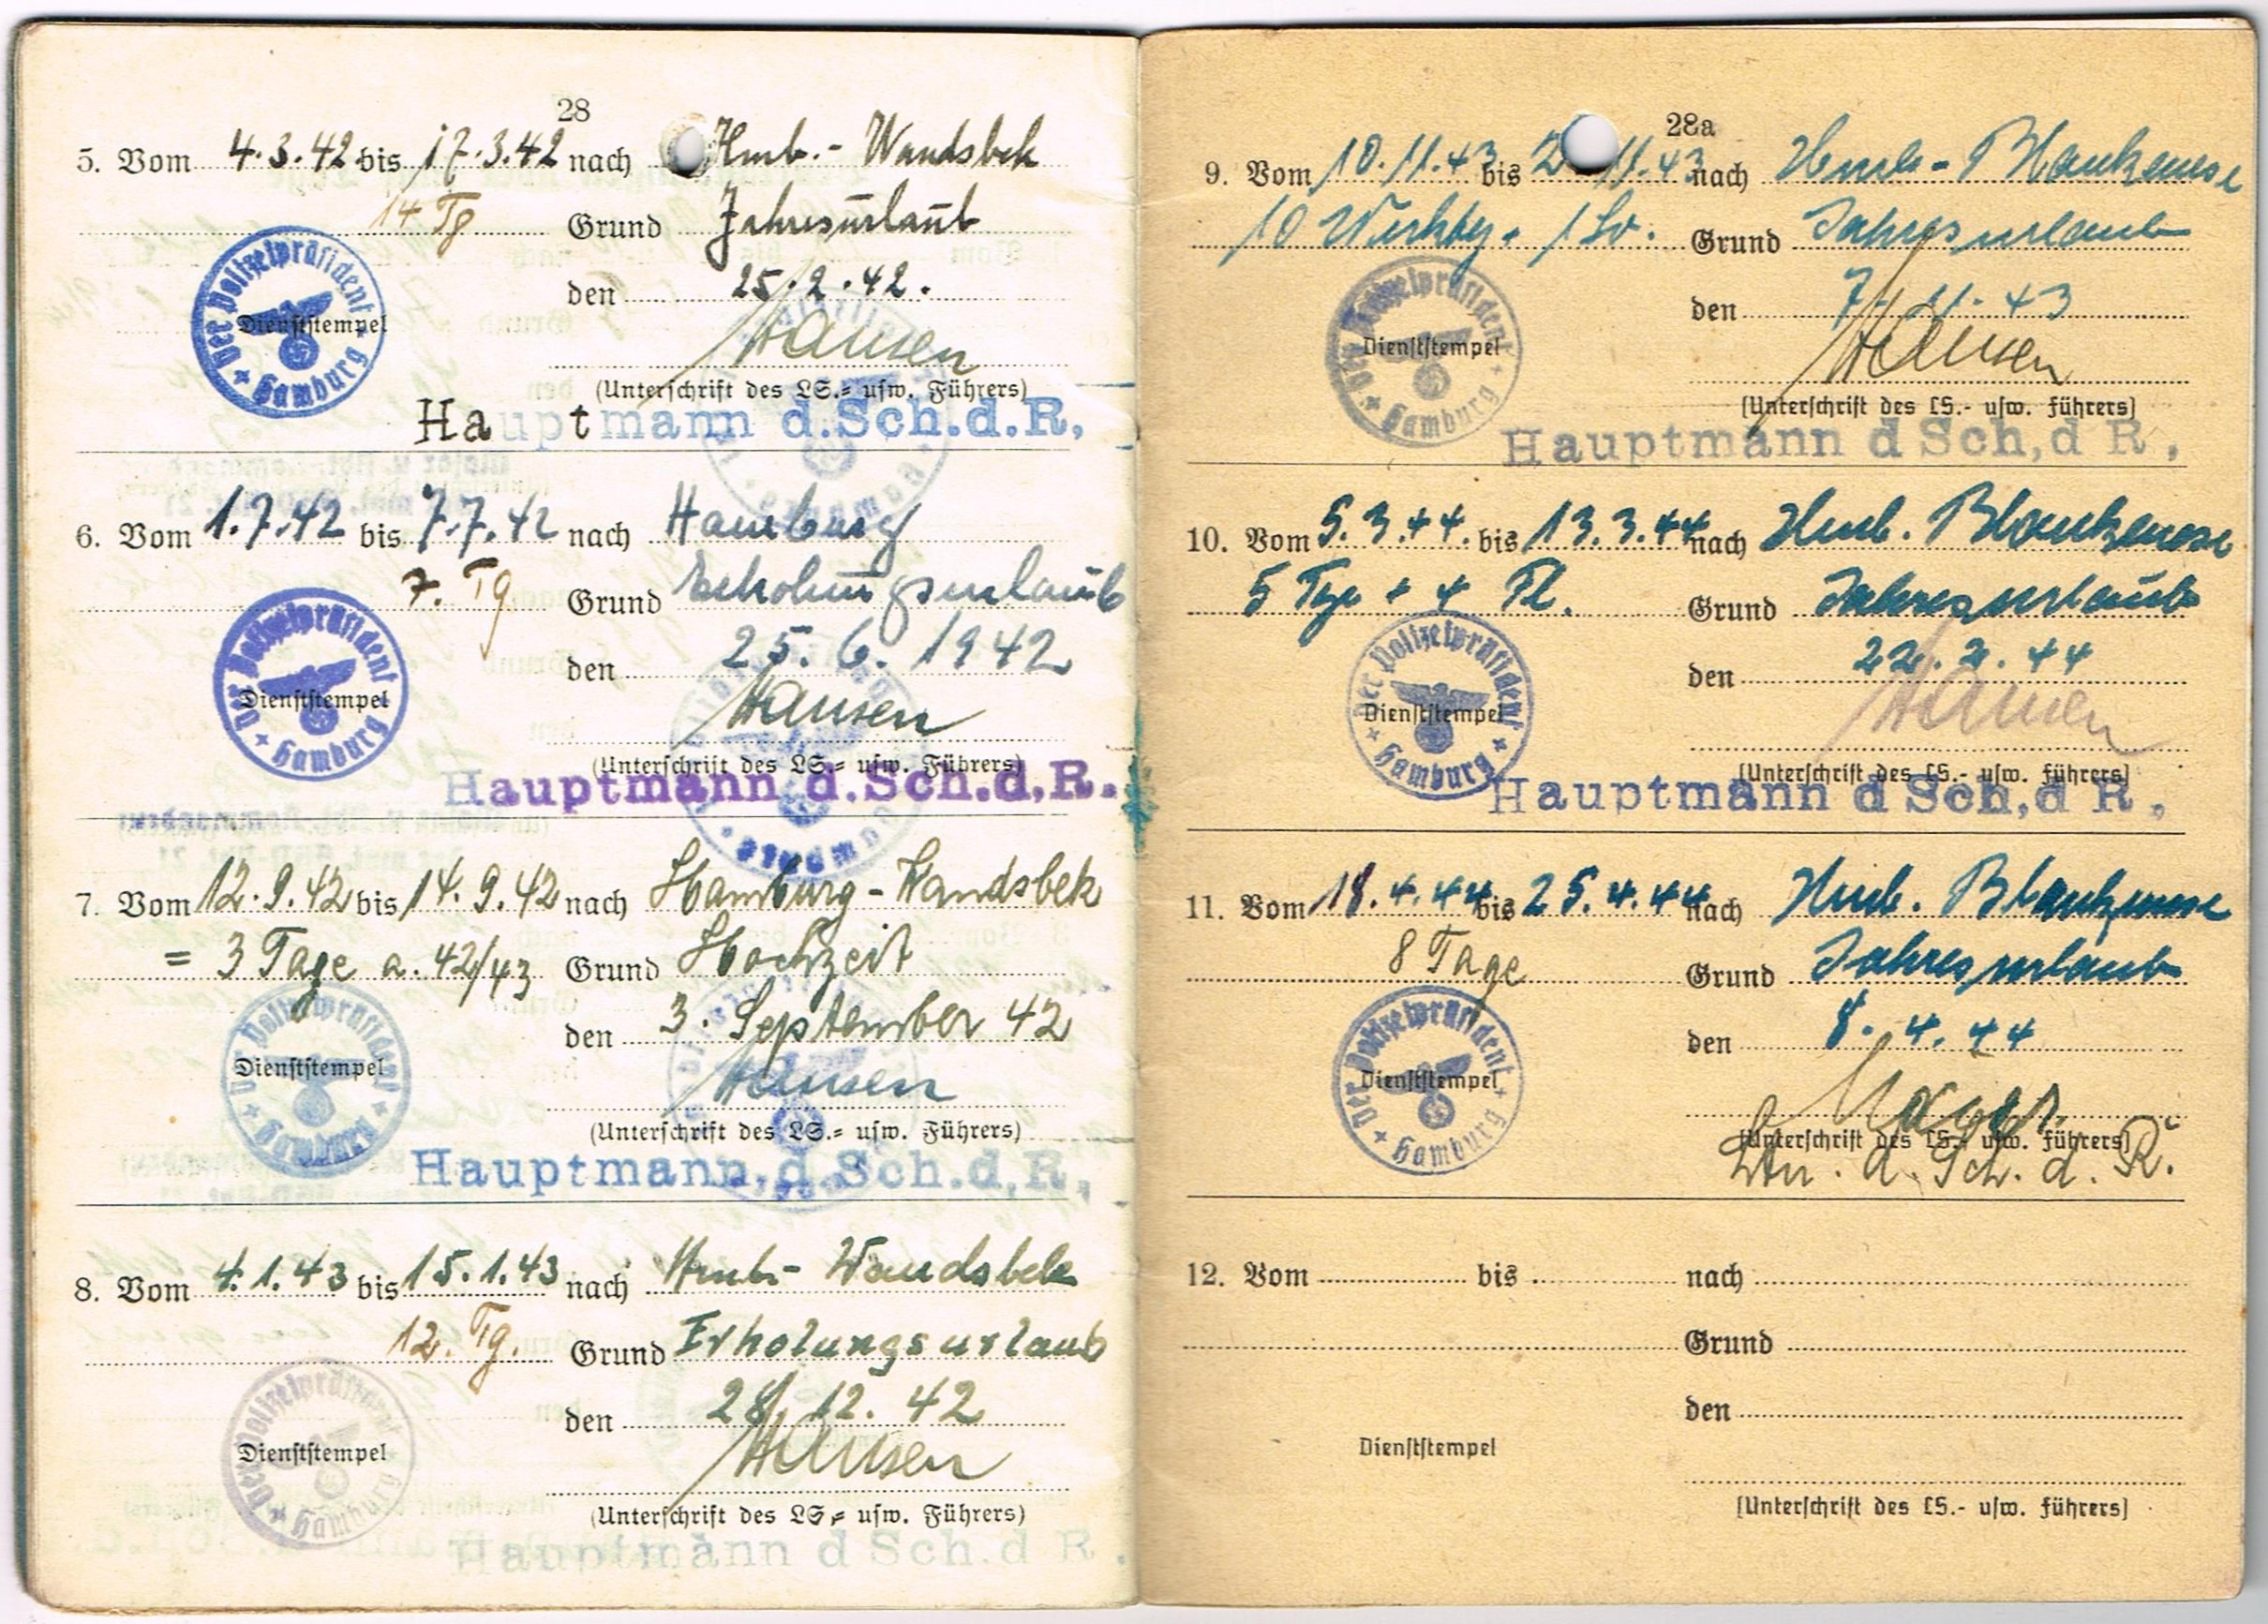 28
5. Vom 4.3.42 bis 17.3.42 nach Hmb.- Wandsbek
14 Tg Grund Jahresurlaub
den 25.2.42.
Der Polizeipräsident Hamburg
Dienststempel
Hansen
(Unterschrift des LS.= usw. Führers)
Hauptmann d.Sch.d.R,
6. Vom 1.7.42 bis 7.7.42 nach Hamburg
7. Tg Grund Erholungsurlaub
den 25.6.1942
Der Polizeipräsident Hamburg
Dienststempel
Hansen
(Unterschrift des LS.= usw. Führers)
Hauptmann d.Sch.d,R.
7. Vom 12.9.42 bis 14.9.42 nach Hamburg-Wandsbek
= 3 Tage a. 42/43 Grund Hochzeit
den 3. September 42
Der Polizeipräsident Hamburg
Dienststempel
Hansen
(Unterschrift des LS.= usw. Führers)
Hauptmann,d.Sch.d,R,
8. Vom 4.1.43 bis 15.1.43 nach Hmb.- Wandsbek
12. Tg. Grund Erholungsurlaub
den 28.12.42
Der Polizeipräsident Hamburg
Dienststempel
Hansen
(Unterschrift des LS.= usw. Führers)
Hauptmann d Sch.d R.
28a
9. Vom 10.11.43 bis 11.43 nach Hmb.- Blankenese
10 Werktg. 1 Grund Jahresurlaub
den 7.11.43
Der Polizeipräsident Hamburg
Dienststempel
Hansen
(Unterschrift des LS.- usw. Führers)
Hauptmann d Sch,d R,
10. Vom 5.3.44. bis 13.3.44 nach Hmb. Blankenese
5 Tge + 4 Fl. Grund Jahresurlaub
den 22.2.44
Der Polizeipräsident Hamburg
Dienststempel
Hansen
(Unterschrift des LS.- usw. Führers)
Hauptmann d Sch,d R,
11. Vom 18.4.44 bis 25.4.44 nach Hmb. Blankenese
8 Tage Grund Jahresurlaub
den 8.4.44
Der Polizeipräsident Hamburg
Dienststempel
(Unterschrift des LS.- usw. Führers)
Ltn. d. Sch. d. R.
12. Vom bis nach
Grund
den
Dienststempel
(Unterschrift des LS.- usw. Führers)